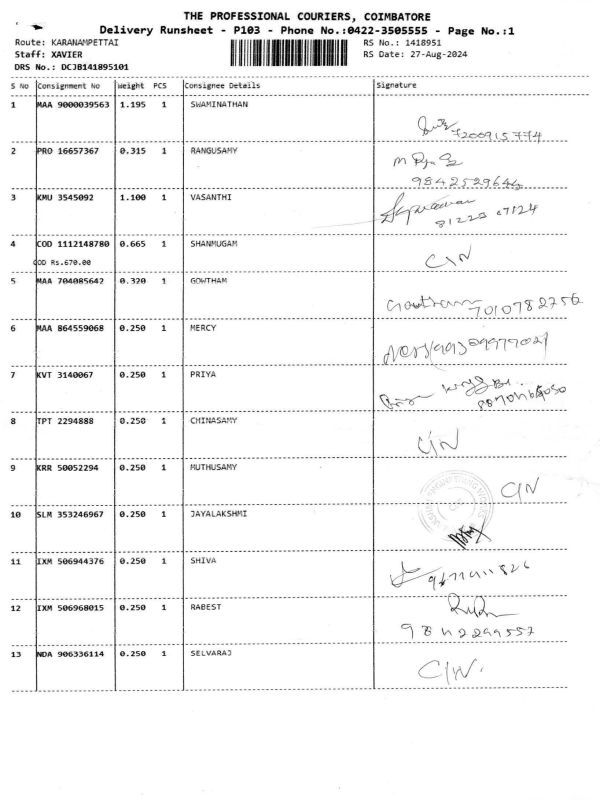 THE PROFESSIONAL COURIERS, COIMBATORE
Delivery Runsheet - P103 - Phone No.:0422-3505555 - Page No.:1
Route: KARANAMPETTAI RS No.: 1418951
Staff: XAVIER RS Date: 27-Aug-2024
DRS No.: DCJB141895101
S No Consignment No Weight PCS Consignee Details Signature
1 MAA 9000039563 1.195 1 SWAMINATHAN
7200915774
2 PRO 16657367 0.315 1 RANGUSAMY
9842529644
3 KMU 3545092 1.100 1 VASANTHI
4 COD 1112148780 0.665 1 SHANMUGAM C/N
OD Rs.670.00
5 MAA 704085642 0.320 1 GOWTHAM
Gowtham 7010782756
6 MAA 864559068 0.250 1 MERCY
7 KVT 3140067 0.250 1 PRIYA
8 TPT 2294888 0.250 1 CHINASAMY
C/N
9 KRR 50052294 0.250 1 MUTHUSAMY
C/N
10 SLM 353246967 0.250 1 JAYALAKSHMI
11 IXM 506944376 0.250 1 SHIVA
12 IXM 506968015 0.250 1 RABEST
9842299557
13 NDA 906336114 0.250 1 SELVARAJ
C/N.